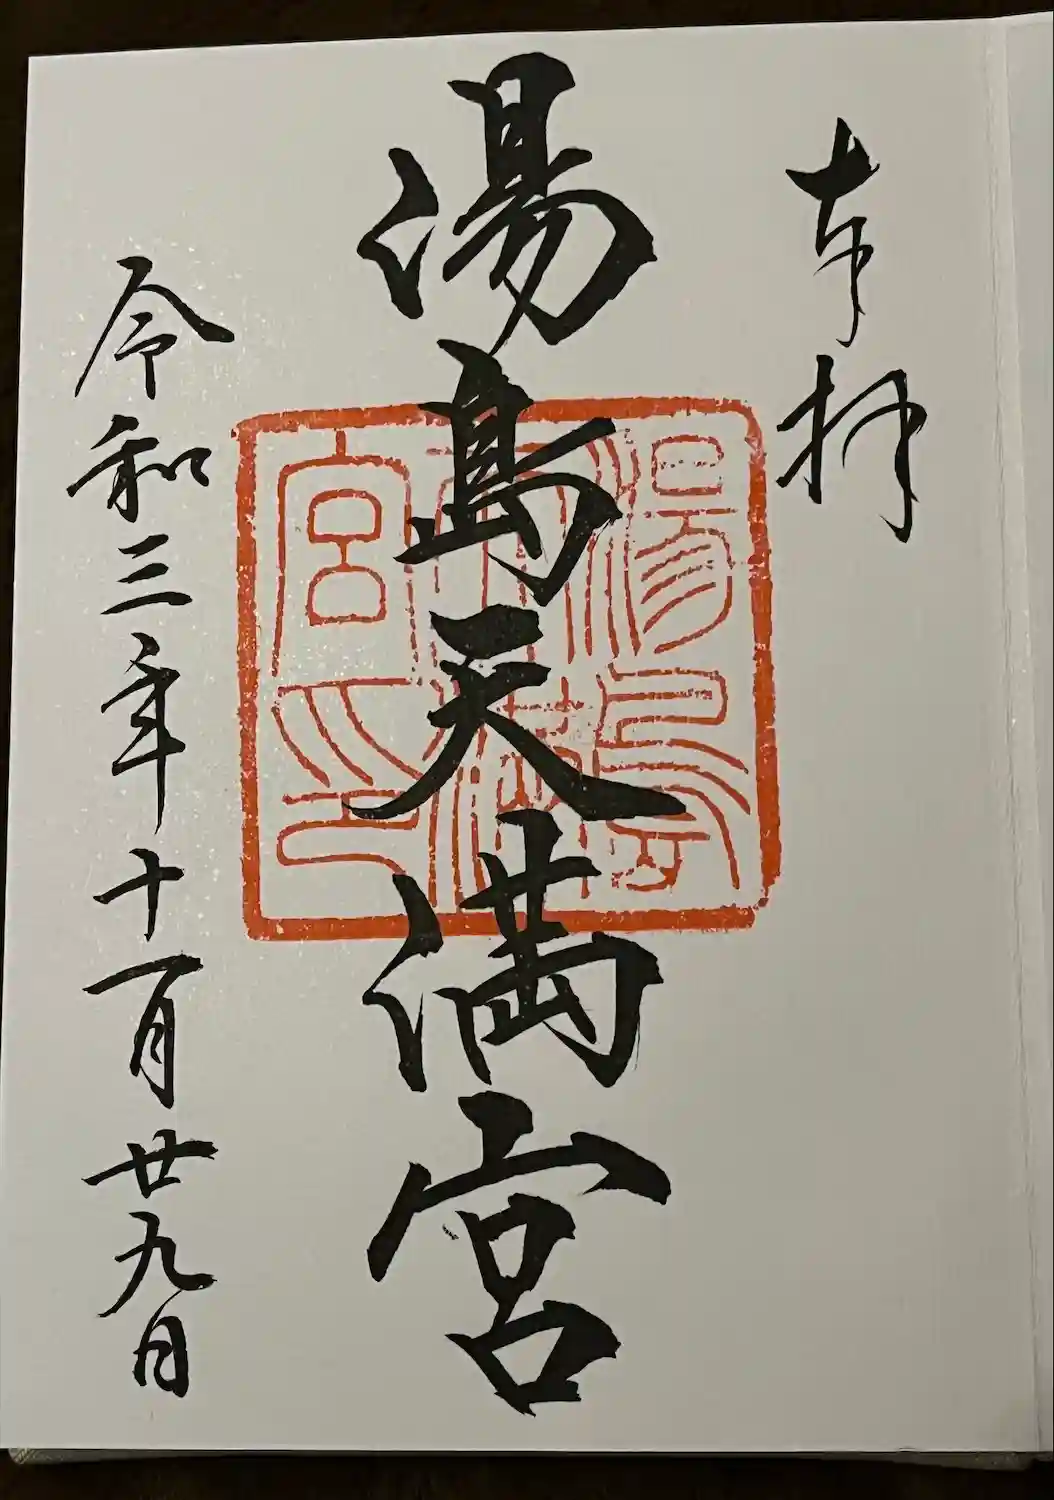 奉拝
湯島天満宮
令和三年十一月廿九日
湯島
天満
宮印